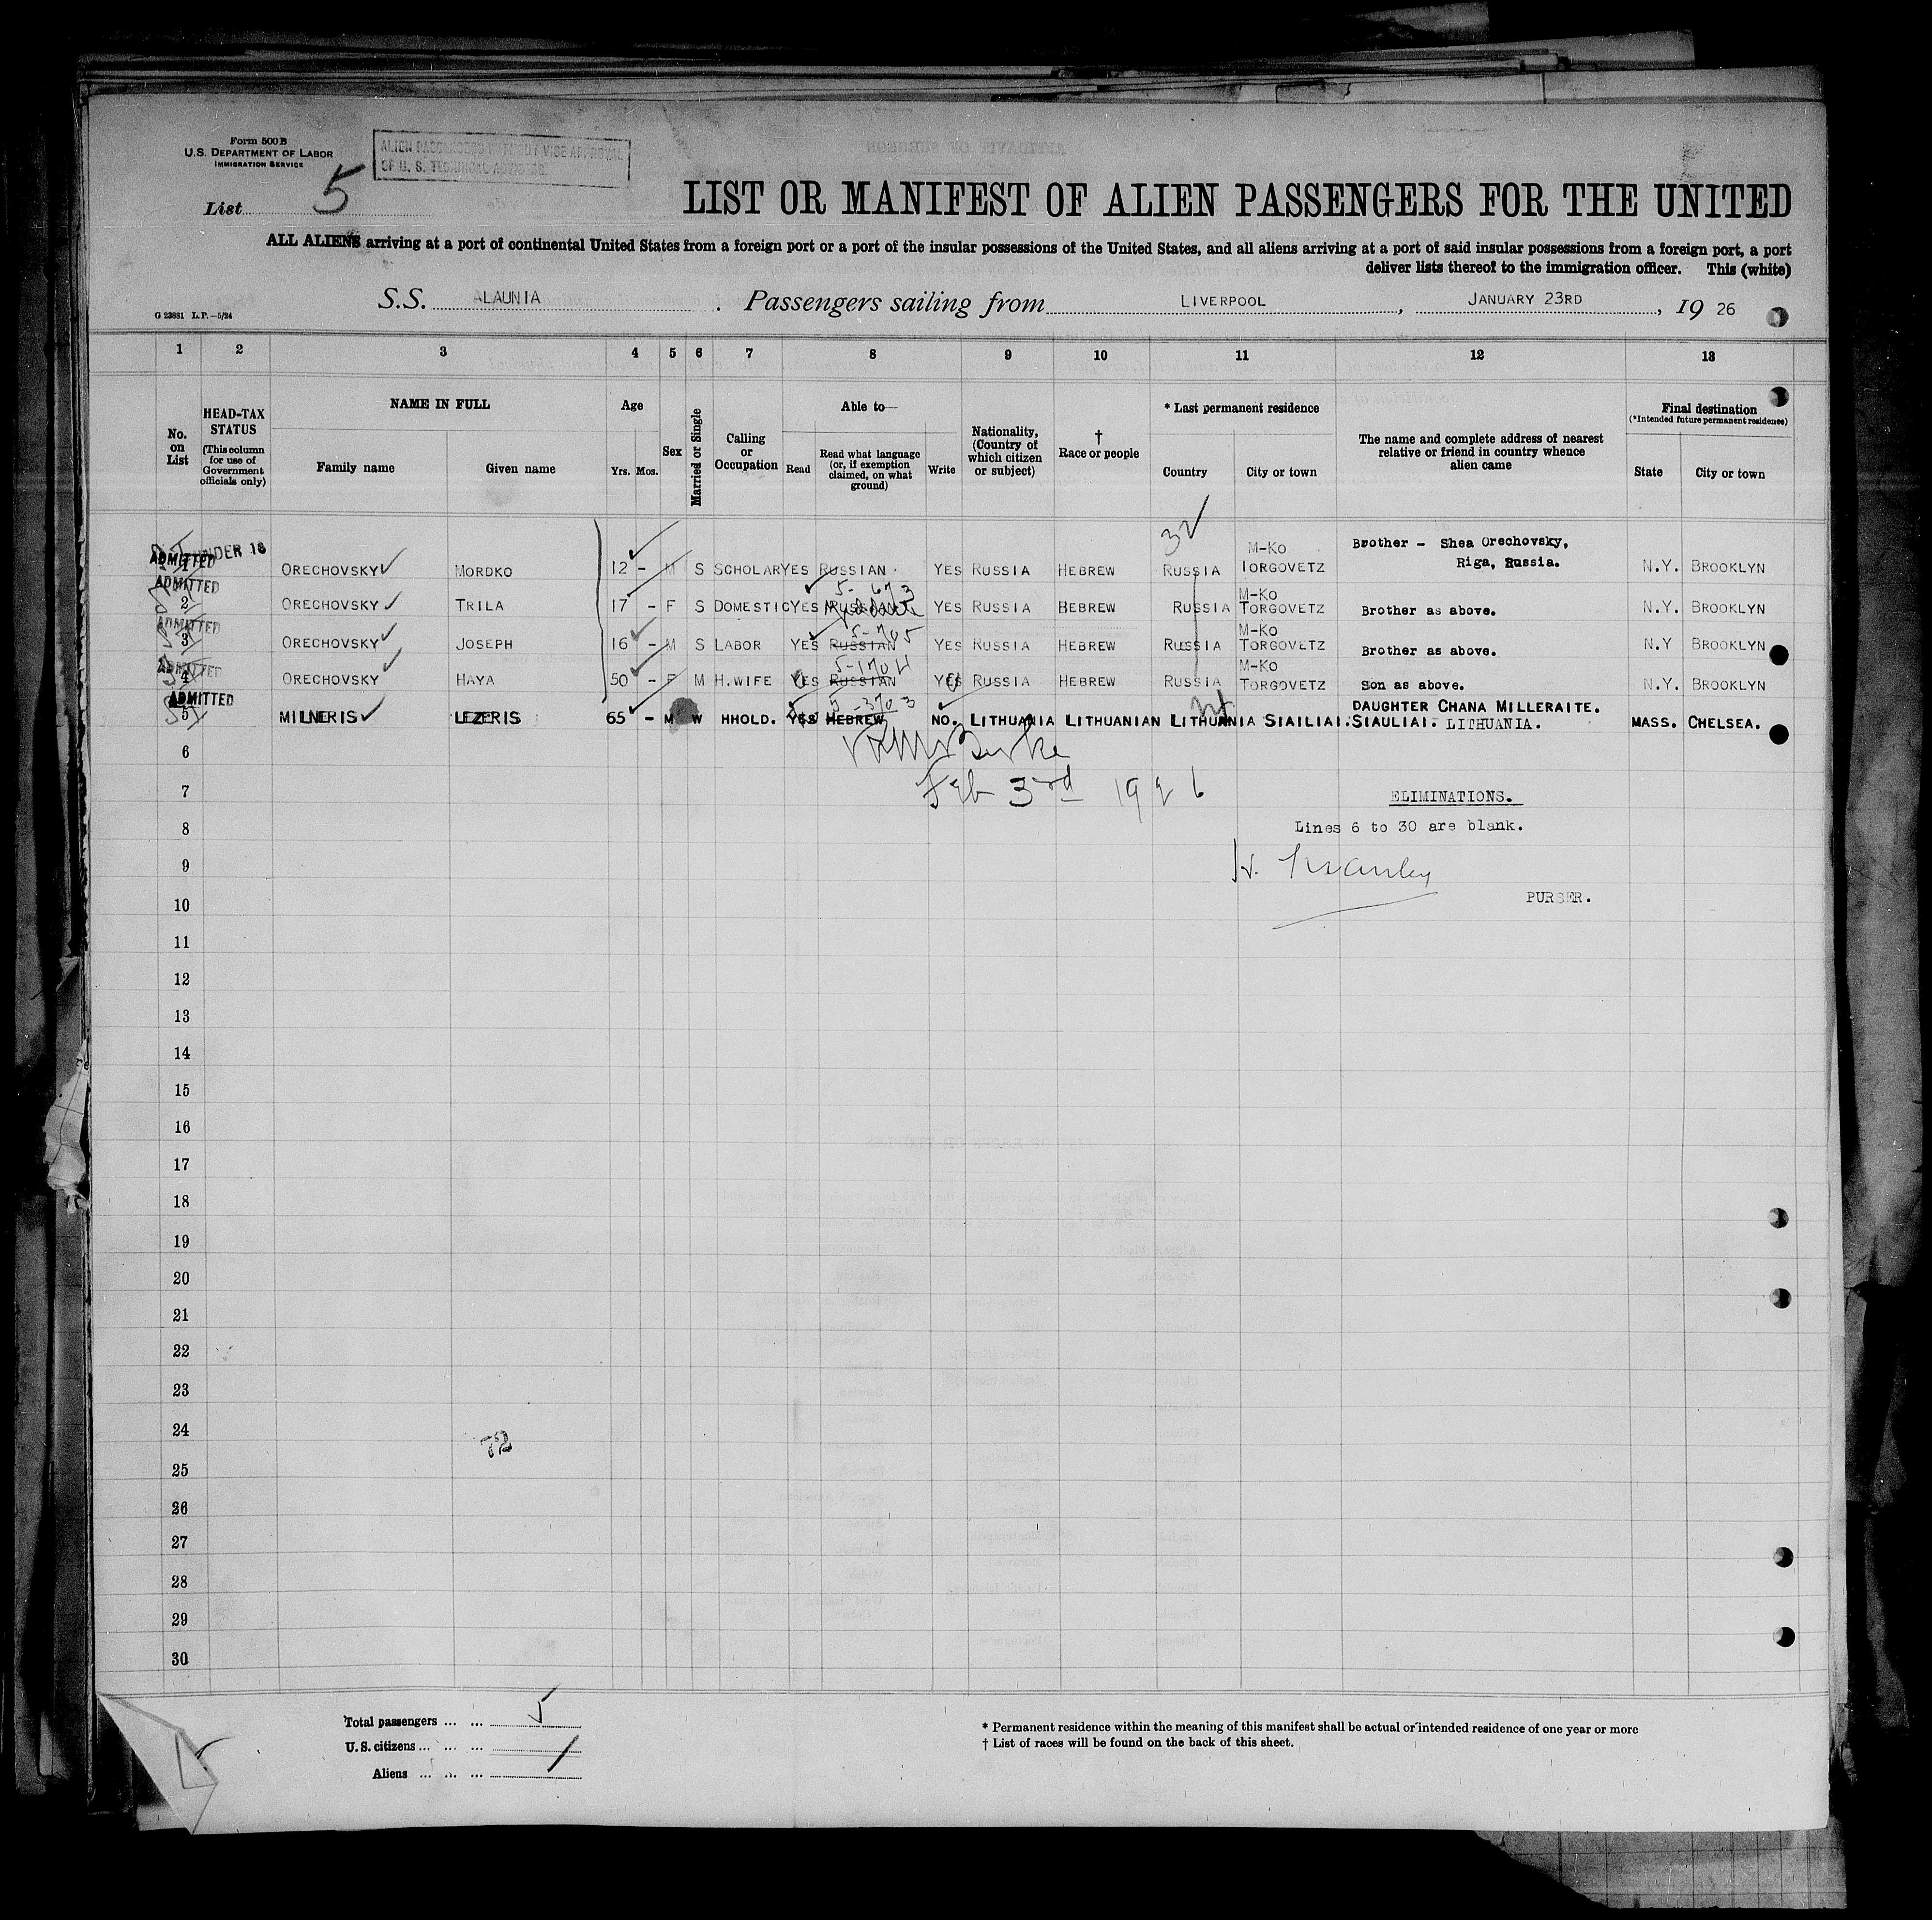 Form 500 B
U.S. DEPARTMENT OF LABOR
IMMIGRATION SERVICE
ALIEN PASSENGERS WITHOUT VISE APPROVAL
OF U. S. TECHNICAL ADVISERS.
List 5
LIST OR MANIFEST OF ALIEN PASSENGERS FOR THE UNITED
ALL ALIENS arriving at a port of continental United States from a foreign port or a port of the insular possessions of the United States, and all aliens arriving at a port of said insular possessions from a foreign port, a port
deliver lists thereof to the immigration officer. This (white)
S.S. ALAUNIA . Passengers sailing from LIVERPOOL , JANUARY 23RD , 19 26
G 23881 L.P.—5/24
1 2 3 4 5 6 7 8 9 10 11 12 13
No. on List
HEAD-TAX STATUS
(This column for use of Government officials only)
NAME IN FULL
Family name Given name
Age
Yrs. Mos.
Sex
Married or Single
Calling or Occupation
Able to—
Read
Read what language (or, if exemption claimed, on what ground)
Write
Nationality, (Country of which citizen or subject)
† Race or people
* Last permanent residence
Country City or town
The name and complete address of nearest relative or friend in country whence alien came
Final destination
(*Intended future permanent residence)
State City or town
32
ADMITTED UNDER 16
1 ORECHOVSKY MORDKO 12 - M S SCHOLAR YES RUSSIAN YES RUSSIA HEBREW RUSSIA M-KO TORGOVETZ Brother - Shea Orechovsky, Riga, Russia. N.Y. BROOKLYN
ADMITTED
5-673
2 ORECHOVSKY TRILA 17 - F S DOMESTIC YES RUSSIAN YES RUSSIA HEBREW RUSSIA M-KO TORGOVETZ Brother as above. N.Y. BROOKLYN
ADMITTED
5-705
3 ORECHOVSKY JOSEPH 16 - M S LABOR YES RUSSIAN YES RUSSIA HEBREW RUSSIA M-KO TORGOVETZ Brother as above. N.Y BROOKLYN
ADMITTED
5-1704
4 ORECHOVSKY HAYA 50 - F M H.WIFE YES RUSSIAN YES RUSSIA HEBREW RUSSIA M-KO TORGOVETZ Son as above. N.Y. BROOKLYN
ADMITTED
5-3703
5 MILNERIS LEZERIS 65 - M W HHOLD. YES HEBREW NO. LITHUANIA LITHUANIAN LITHUANIA SIAILIAI. DAUGHTER CHANA MILLERAITE. SIAULIAI. LITHUANIA. MASS. CHELSEA.
6
Feb 3rd 1926
7 ELIMINATIONS.
8 Lines 6 to 30 are blank.
9
10 PURSER.
11
12
13
14
15
16
17
18
19
20
21
22
23
24 72
25
26
27
28
29
30
Total passengers ... ... 5
U.S. citizens ... ... ...
Aliens ... ... ...
* Permanent residence within the meaning of this manifest shall be actual or intended residence of one year or more
† List of races will be found on the back of this sheet.